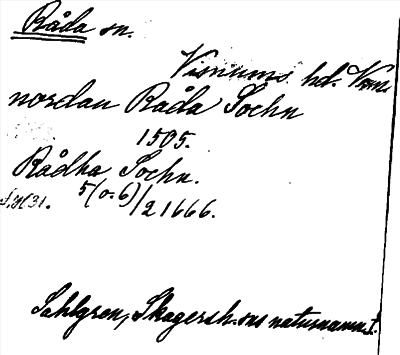 Råda sn.
Visnums hd. Verml.
nordau Råda Sochn
1505.
Rådha Sochn.
5(o.6)/2 1666.
Sahlgren, Skagersh. sns naturnamn I.